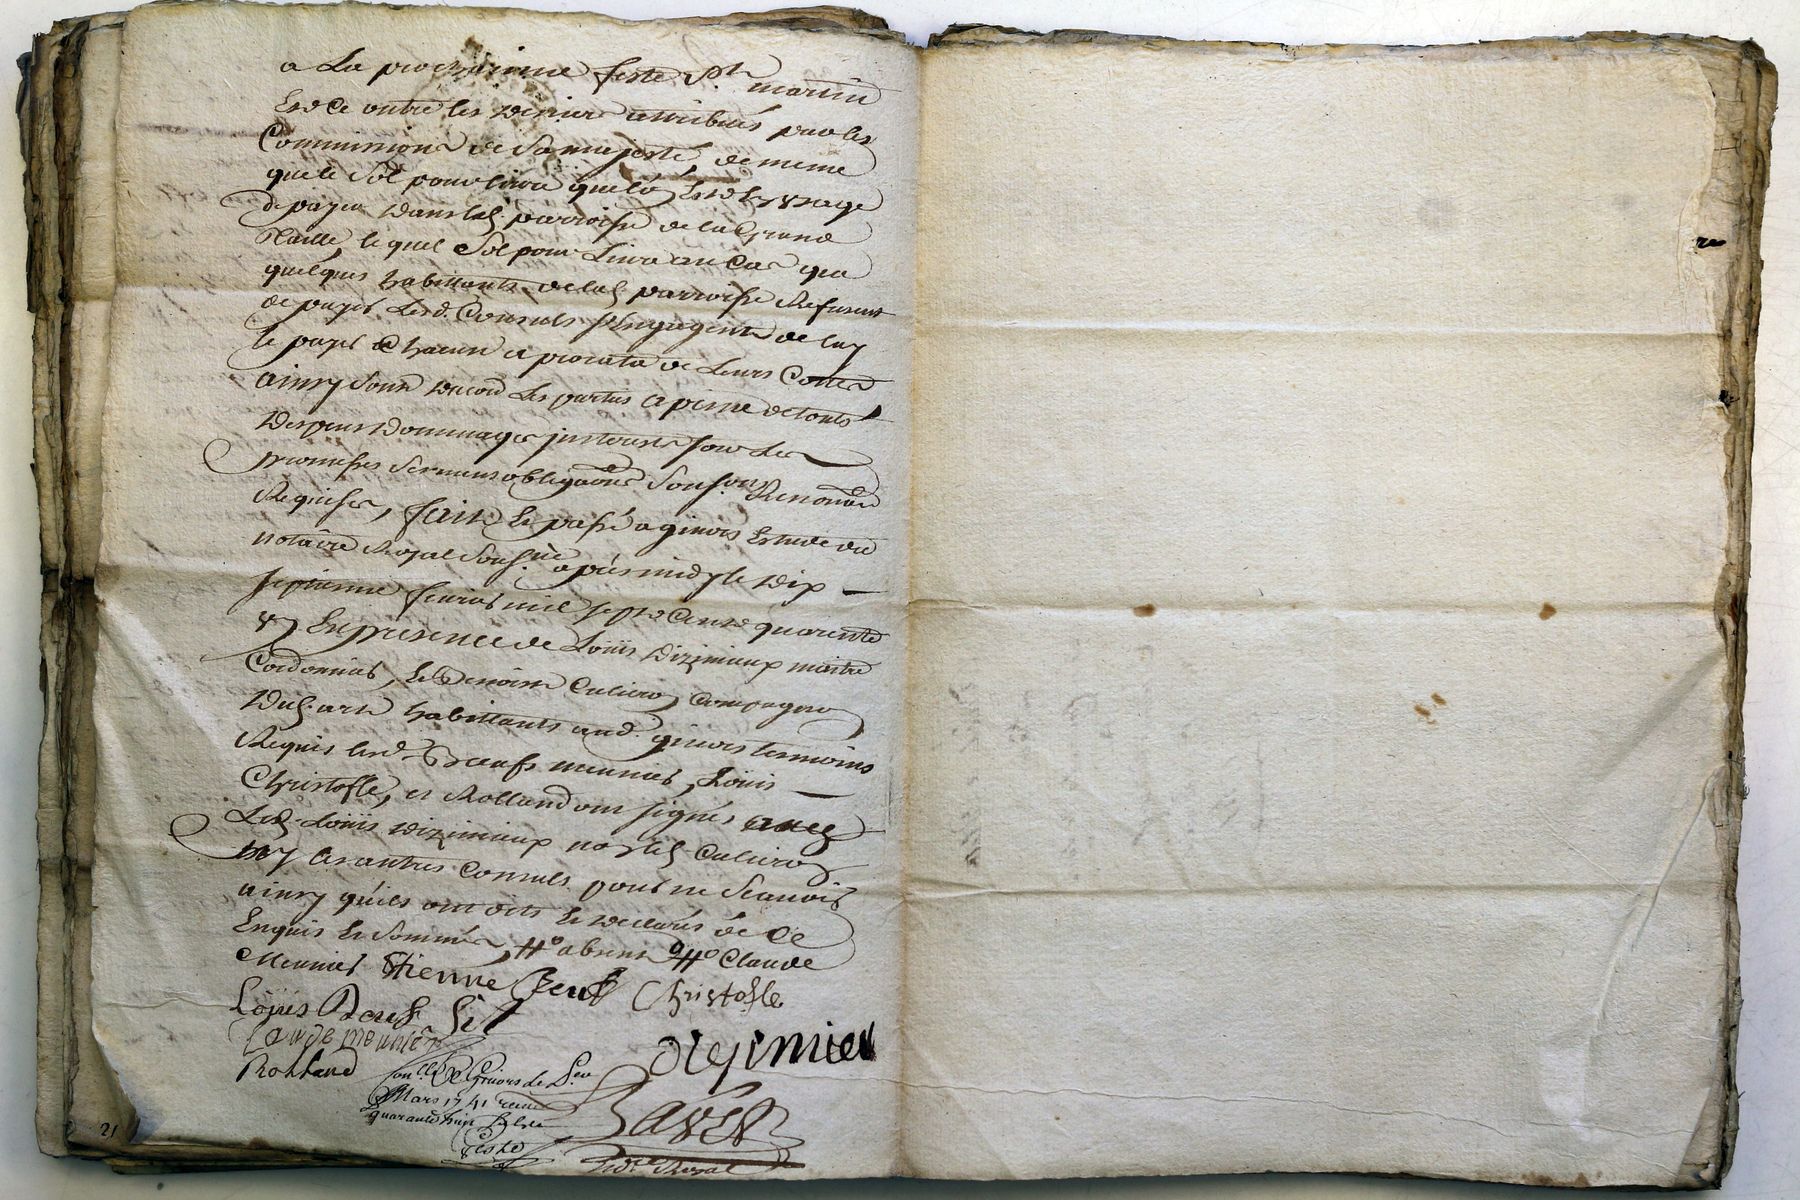 a La prochaine feste St. martin
Et Ce outre les deniers attribués par les
Commissions de Sa majesté, de meme
que le Sol pour livre quil Est dusage
de payer dans lad. parroisse de la Grand
Taille, le quel Sol pour Livre au Cas que
quelques habittants de lad. parroisse Refusent
de payer Lesd. Consuls s'Engagent de luy
le payer Chacun a prorata de Leurs Cottes
ainsy Sont dacord Les parties a peine de touts
despens dommages interests sous Les
promesses Serments obligaons Soumons Renonaons
Requises, fait Et passé a givors Estude du
notaire Royal Sousné. apres midy le dix
septieme fevrier mil sept Cents quarente
un En presence de Loüis dizimieux maitre
Cordonnier, Et Benoist Cuzieux Compagnon
dud. art habittants aud. givors temoins
Requis lesd. Boeufs meunier, Loüis
Christofle, et Rolland ont signés avec
Led. Loüis dizimieux non led. Cuzieux
ny les autres Consuls pour ne Scavoir
ainsy quils ont dit Et declarés de ce
Enquis Et Sommés, #o absent #o Claude
Meunier Etienne Beuf Christofle
Loüis Beuf
Claude meunier
Rolland
dizimieu
Conllé. A Givors le
Mars 1741 receu
quarante huit sols
Bavet
Nore. Royal
21